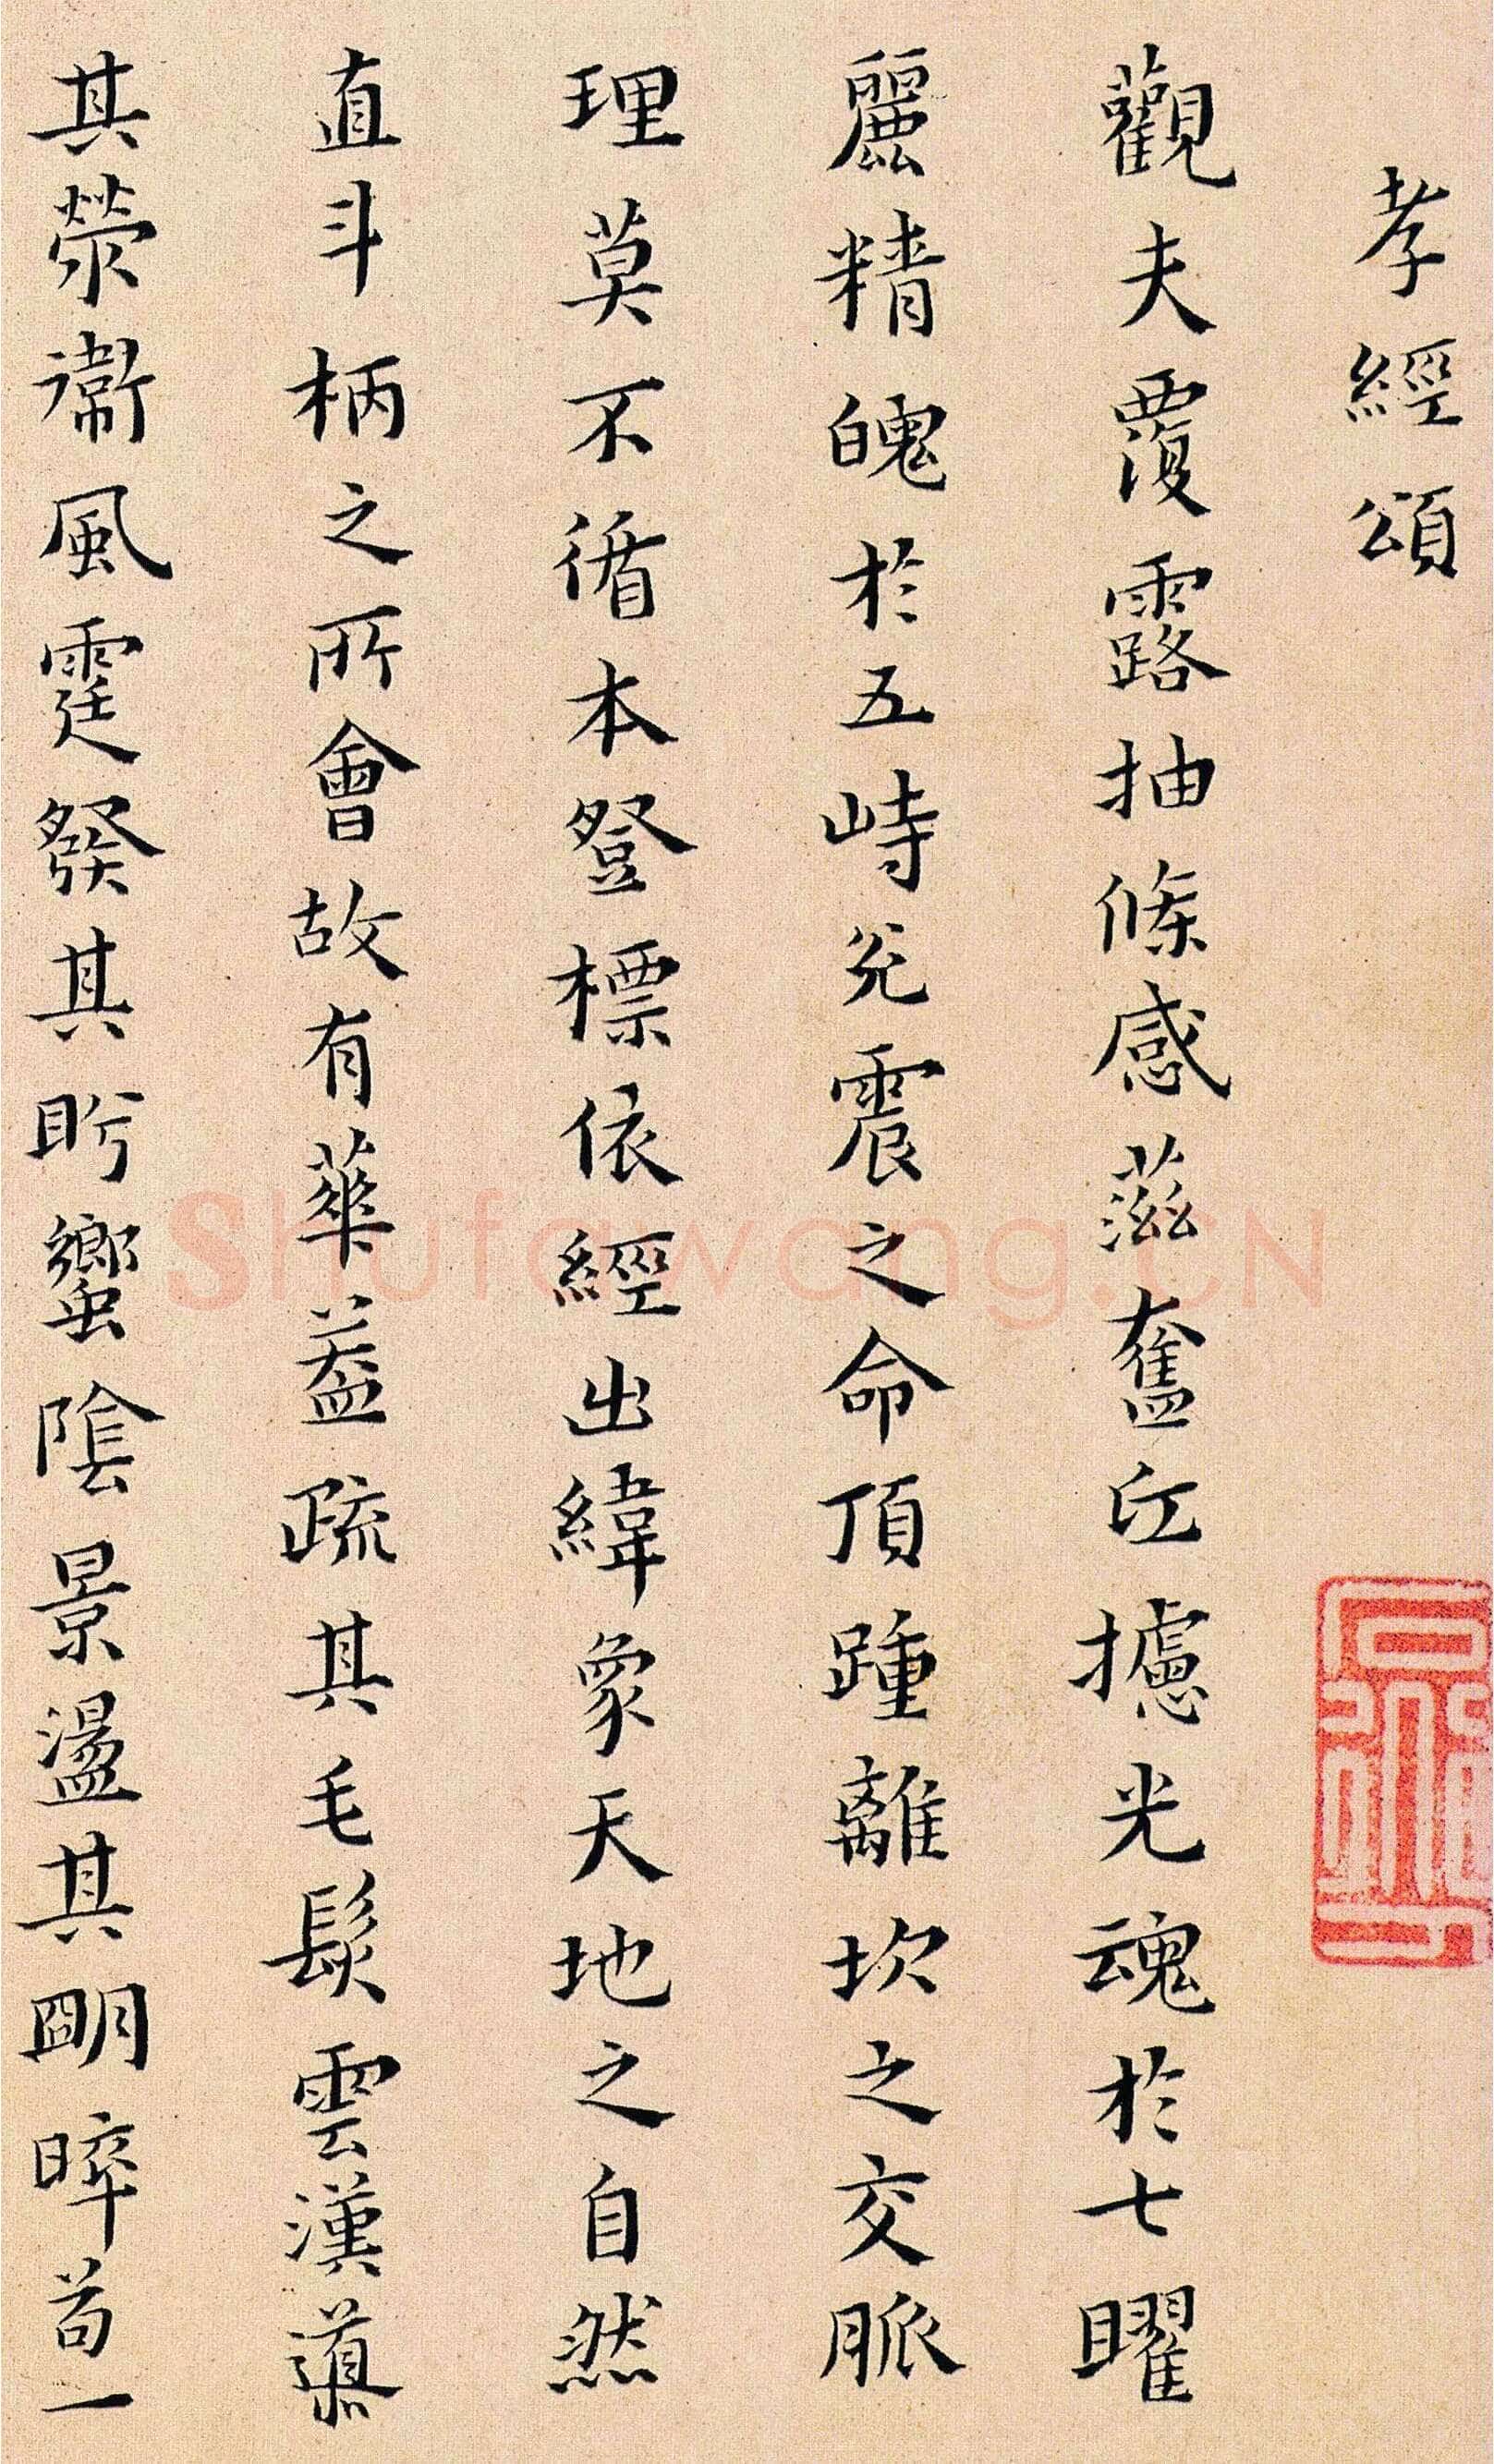 孝經頌
觀夫覆露抽條感滋奮丘攄光魂於七曜
麗精魄於五峙兊震之命頂踵離坎之交脈
理莫不循本登標依經出緯象天地之自然
直斗柄之所會故有華蓋疏其毛髮雲漢導
其滎衛風霆發其盻蠁陰景盪其明晬苟一
Shufawang.CN